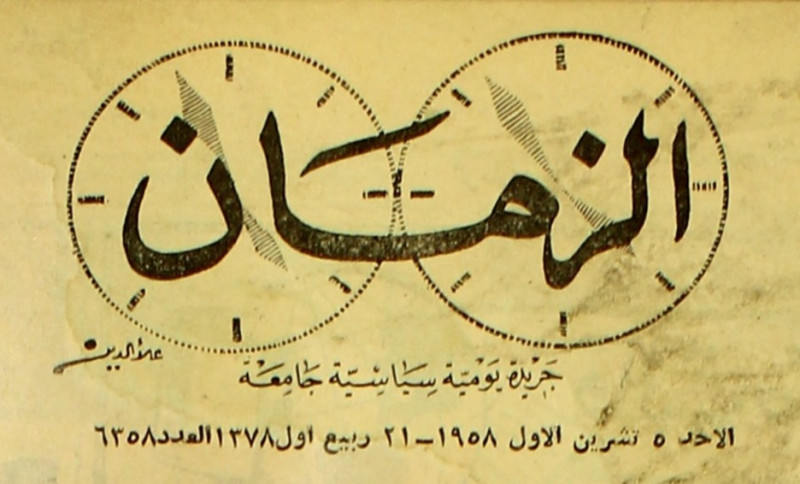 الزمان
علاءالدين
جَريْدة يَوْميّة سِيَاسْيّة جَامِعَة
الاحد ٥ تشرين الاول ١٩٥٨-٢١ ربيع اول ١٣٧٨ العدد ٦٣٥٨